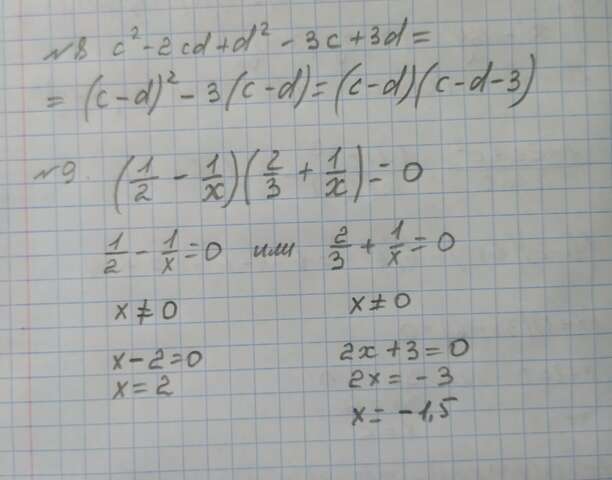 №8 c² - 2cd + d² - 3c + 3d =
= (c-d)² - 3(c-d) = (c-d)(c-d-3)
№9 (1/2 - 1/x)(2/3 + 1/x) = 0
1/2 - 1/x = 0 или 2/3 + 1/x = 0
x ≠ 0 x ≠ 0
x - 2 = 0 2x + 3 = 0
x = 2 2x = -3
x = -1,5